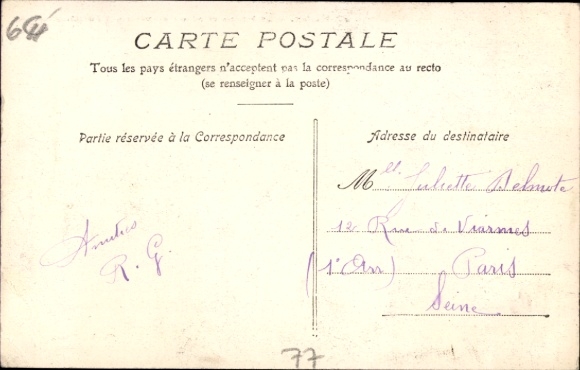 64
CARTE POSTALE
Tous les pays étrangers n'acceptent pas la correspondance au recto
(se renseigner à la poste)
Partie réservée à la Correspondance
Adresse du destinataire
Mlle Juliette
12 Rue de Viarmes
(1er Arr) Paris
Seine
Amitiés
R. G.
77